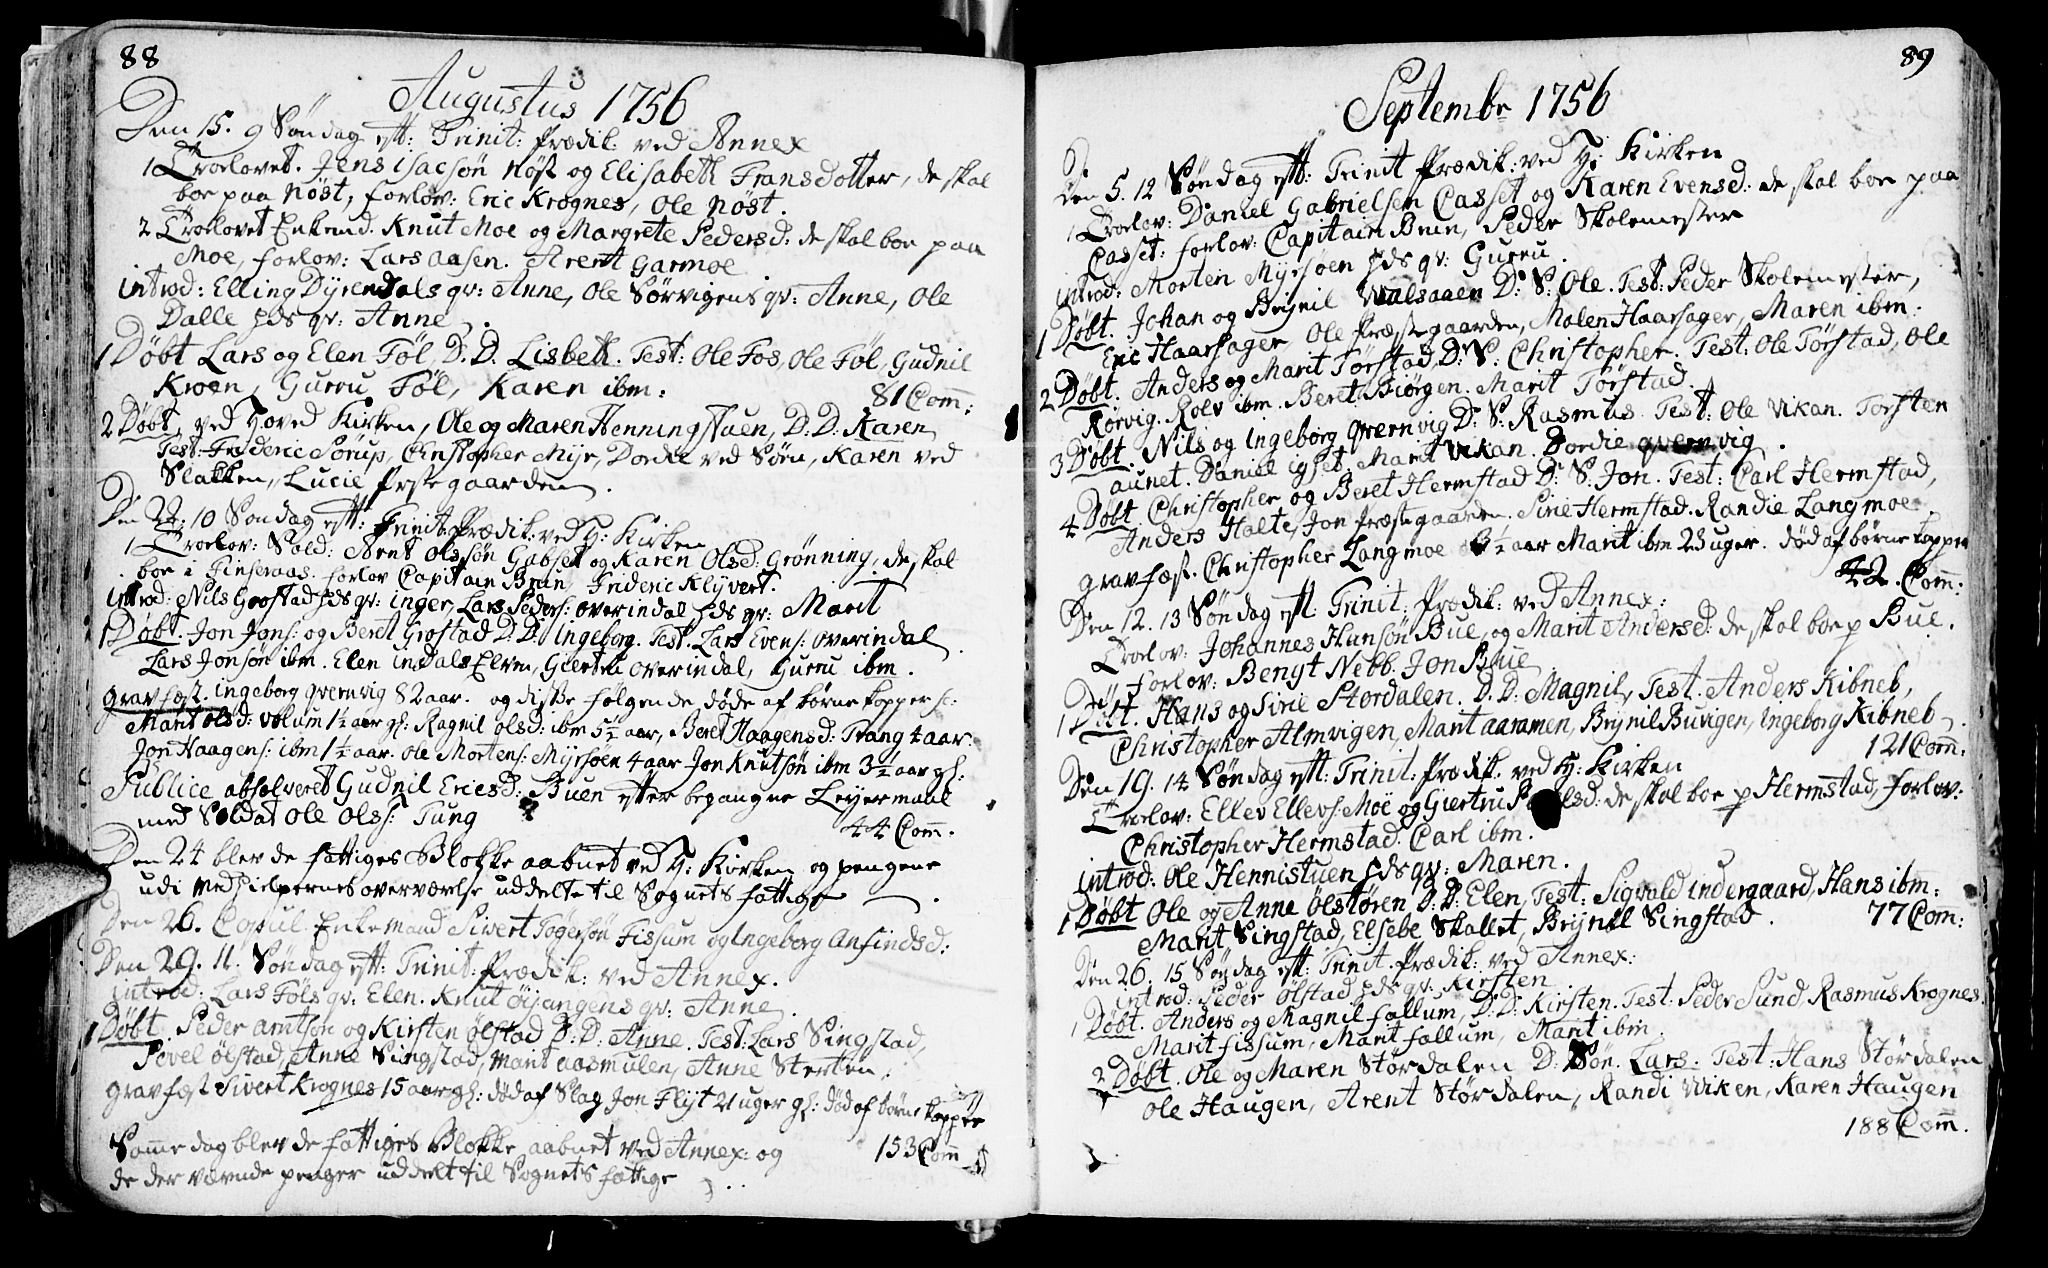 88
Augustus 1756
Den 15. 9 Søndag eft: Trinit: Prædik: ved Annex
1 Troelovet. Jens Isacsøn Nøst og Elisabeth Fransdotter, de skal
boe paa Nøst, forlov: Eric Krognes, Ole Nøst.
2 Troelovet Enkemd. Knut Moe og Margrete Pedersd: de skal boe paa
Moe, forlov: Lars Aasen. Arent Garmoe
introd: Elling Dyrendals qv: Anne, Ole Sørvigens qv: Anne, Ole
Dalle hds qv: Anne.
1 Døbt Lars og Elen Føl, D. D. Lisbeth. Test: Ole Fos, Ole Føl, Gudnil
Kroen, Gurru Føl, Karen ibm: 81 Com̄:
2 Døbt, ved Hoved Kirken, Ole og Maren Henningstuen, D: D: Karen
Test: Frideric Sørup, Christopher Myr, Dordie ved Søen, Karen ved
Slakken, Lucie Præstegaarden.
Den 22. 10 Søndag eft: Trinit: Prædik: ved H: Kirken
1 Troelov: Sold: Arnt Olssøn Gabset og Karen Olsd: Grønning, de skal
boe i Finseraas. forlov Capitain Brun, Frideric Klyvert.
introd: Nils Grostad hds qv: inger, Lars Peders: overindal hds qv: Marit
1 Døbt. Jon Jons: og Beret Grostad D. D. Ingeborg. Test. Lars Evens: overindal
Lars Jonsøn ibm. Elen indals Elven, Giertru overindal, Gurru ibm.
gravfæst. ingeborg qvernvig 82 aar. og disse følgende døde af børnekopper s:
Marit olsd: volum 1½ aar gl: Ragnil olsd: ibm 5½ aar, Beret Haagensd: Trang ¼ aar.
Jon Haagens: ibm 1½ aar. ole Mortens: Myrsøen 4 aar Jon Knutsøn ibm 3½ aar gl:
Publice absolveret Gudnil Ericsd: Buen efter begangne Leyermaal
med Soldat Ole Ols: Tung 44 Com̄.
Den 24 blev de fattiges Blokke aabnet ved H: Kirken og pengene
udi Medhielpernes overværelse uddelte til Sognets fattige.
Den 26. Copul. Enkemand Sivert Tøgersøn Fissum og Ingeborg Anfindsd:
Den 29. 11. Søndag eft: Trinit: Prædik: ved Annex.
introd: Lars Føls qv: Elen. Knut Øyangens qv: Anne
1 Døbt. Peder Arntson og Kirsten Ølstad D: D: Anne. Test: Lars Singstad,
Sevel Ølstad, Anne Singstad, Marit Aasmulen, Anne Sterten.
gravfæst Sivert Krognes 15 aar gl: død af Slag Jon Flyt 2 uger gl: død af børnekopper
Samme dag blev de fattiges Blokke aabnet ved Annex: og 153 Com̄
de der værende penger uddelt til Sognets fattige
89
Septembr 1756
Den 5. 12 Søndag eft: Trinit Prædik: ved H: Kirken
1 Troelov: Daniel Gabrielsen Casset og Karen Evensd: de skal boe paa
Casset: forlov: Capitain Brun, Peder Skolemester
introd: Morten Myrsøen hds qv: Gurru.
1 Døbt. Johan og Brynil Walsaaen D: S: Ole. Test: Peder Skolemester,
Eric Haarsager, Ole Præstegaarden, Malen Haarsager, Maren ibm.
2 Døbt. Anders og Marit Tørstad, D: S. Christopher. Test: Ole Tørstad, Ole
Rørvig. Rolv ibm. Beret Biørgen. Marit Tørstad.
3 Døbt. Nils og Ingeborg qvernvig D: S: Rasmus. Test: Ole Vikan. Torsten
aunet. Daniel igset. Marit Vikan. Dordie qvernvig.
4 Døbt Christopher og Beret Hermstad D: S. Jon. Test: Carl Hermstad,
Anders Halte, Jon Præstegaarden. Sirie Hermstad. Randie Langmoe.
gravfæst. Christopher Langmoe 3½ aar Marit ibm 2 uger. død af børnekopper
42. Com̄:
Den 12. 13 Søndag eft: Trinit: Prædik: ved Annex:
Troelov: Johannes Hansøn Bue, og Marit Andersd: de skal boe p Bue.
forlov: Bengt Nebb. Jon Bue
1 Døbt. Hans og Sirie Stordalen. D. D: Magnil, Test. Anders Kibneb,
Christopher Almvigen, Marit aaramen, Brynil Burigen, Ingeborg Kibneb.
121 Com̄:
Den 19. 14 Søndag eft: Trinit: Prædik. ved H: Kirken
Troelov: Ellev Ellevs: Moe og Giertru de skal boe p Hermstad, forlov:
Christopher Hermstad. Carl ibm.
introd: Ole Hennistuen hds qv: Maren.
1 Døbt Ole og Anne Ølstøren D: D: Elen, Test: Sigvald indergaard, Hans ibm:
Marit Singstad, Elsebe Skallet, Brynil Singstad. 77 Com̄:
Den 26. 15 Søndag eft: Trinit Prædik: ved Annex:
introd: Peder Ølstad hds qv: Kirsten
1 Døbt. Anders og Magnil fallum, D: D: Kirsten. Test: Peder Sund, Rasmus Krognes.
Marit fissum, Marit fallum, Marit ibm.
2 Døbt. Ole og Maren Størdalen D. Søn. Lars. Test: Hans Størdalen
Ole Haugen, Arent Størdalen, Randi Viken, Karen Haugen
188 Com̄.